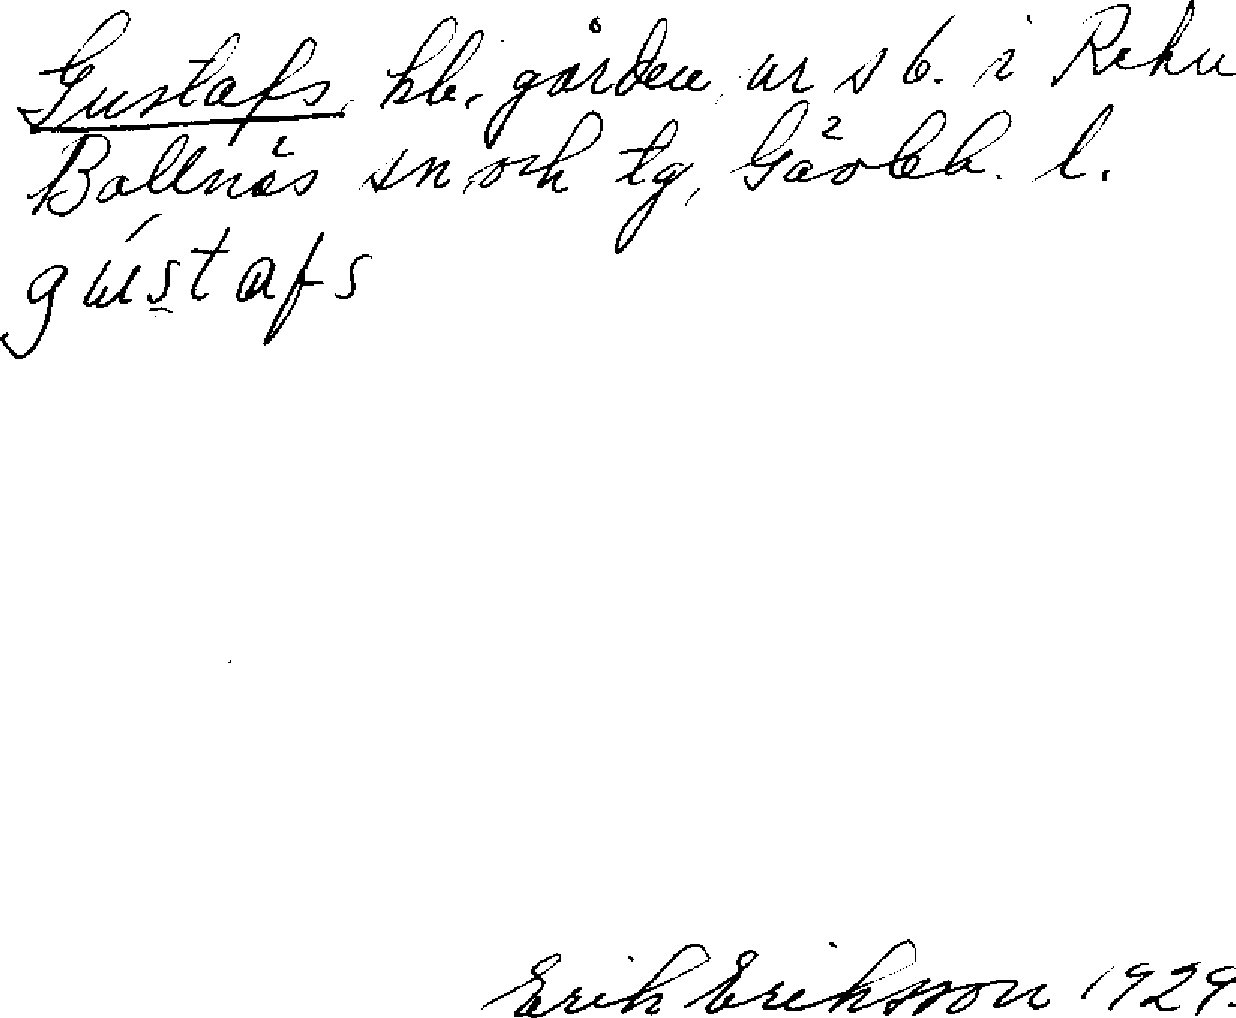 Gustafs, hb. gården, nr sb. i Rehn
Bollnäs sn och tg, Gävleb. l.
gústafs
Erik Eriksson 1929.